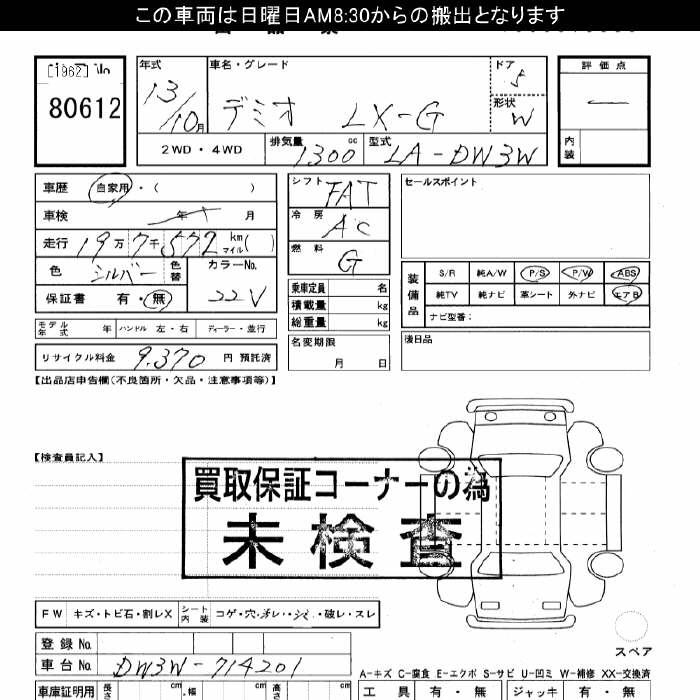 この車両は日曜日AM8:30からの搬出となります
[1962] No
80612
年式 車名・グレード ドア 5 評価点
13/10月 デミオ LX-G 形状 W
内装
2WD・4WD 排気量 1300 cc 型式 LA-DW3W
車歴 自家用・( )
シフト FAT
セールスポイント
車検 年 月
冷房 AC
走行 19万7千572km マイル( )
燃料 G
色 シルバー 色替 カラーNo. 22V
保証書 有・無
乗車定員 名
積載量 kg
総重量 kg
装備品 S/R 純A/W P/S P/W ABS
純TV 純ナビ 革シート 外ナビ エアB
ナビ型番:
モデル年式 年 ハンドル 左・右 ディーラー・並行
名変期限 月 日
後日品
リサイクル料金 9,370 円 預託済
【出品店申告欄(不良箇所・欠品・注意事項等)】
【検査員記入】
買取保証コーナーの為
未検査
FW キズ・トビ石・割レX シート内装 コゲ・穴・汚レ・シミ・破レ・スレ
スペア
登録No.
車台No. DW3W-714201
A-キズ C-腐食 E-エクボ S-サビ U-凹ミ W-補修 XX-交換済
車庫証明用 長さ cm 幅 cm 高さ cm 工具 有・無 ジャッキ 有・無